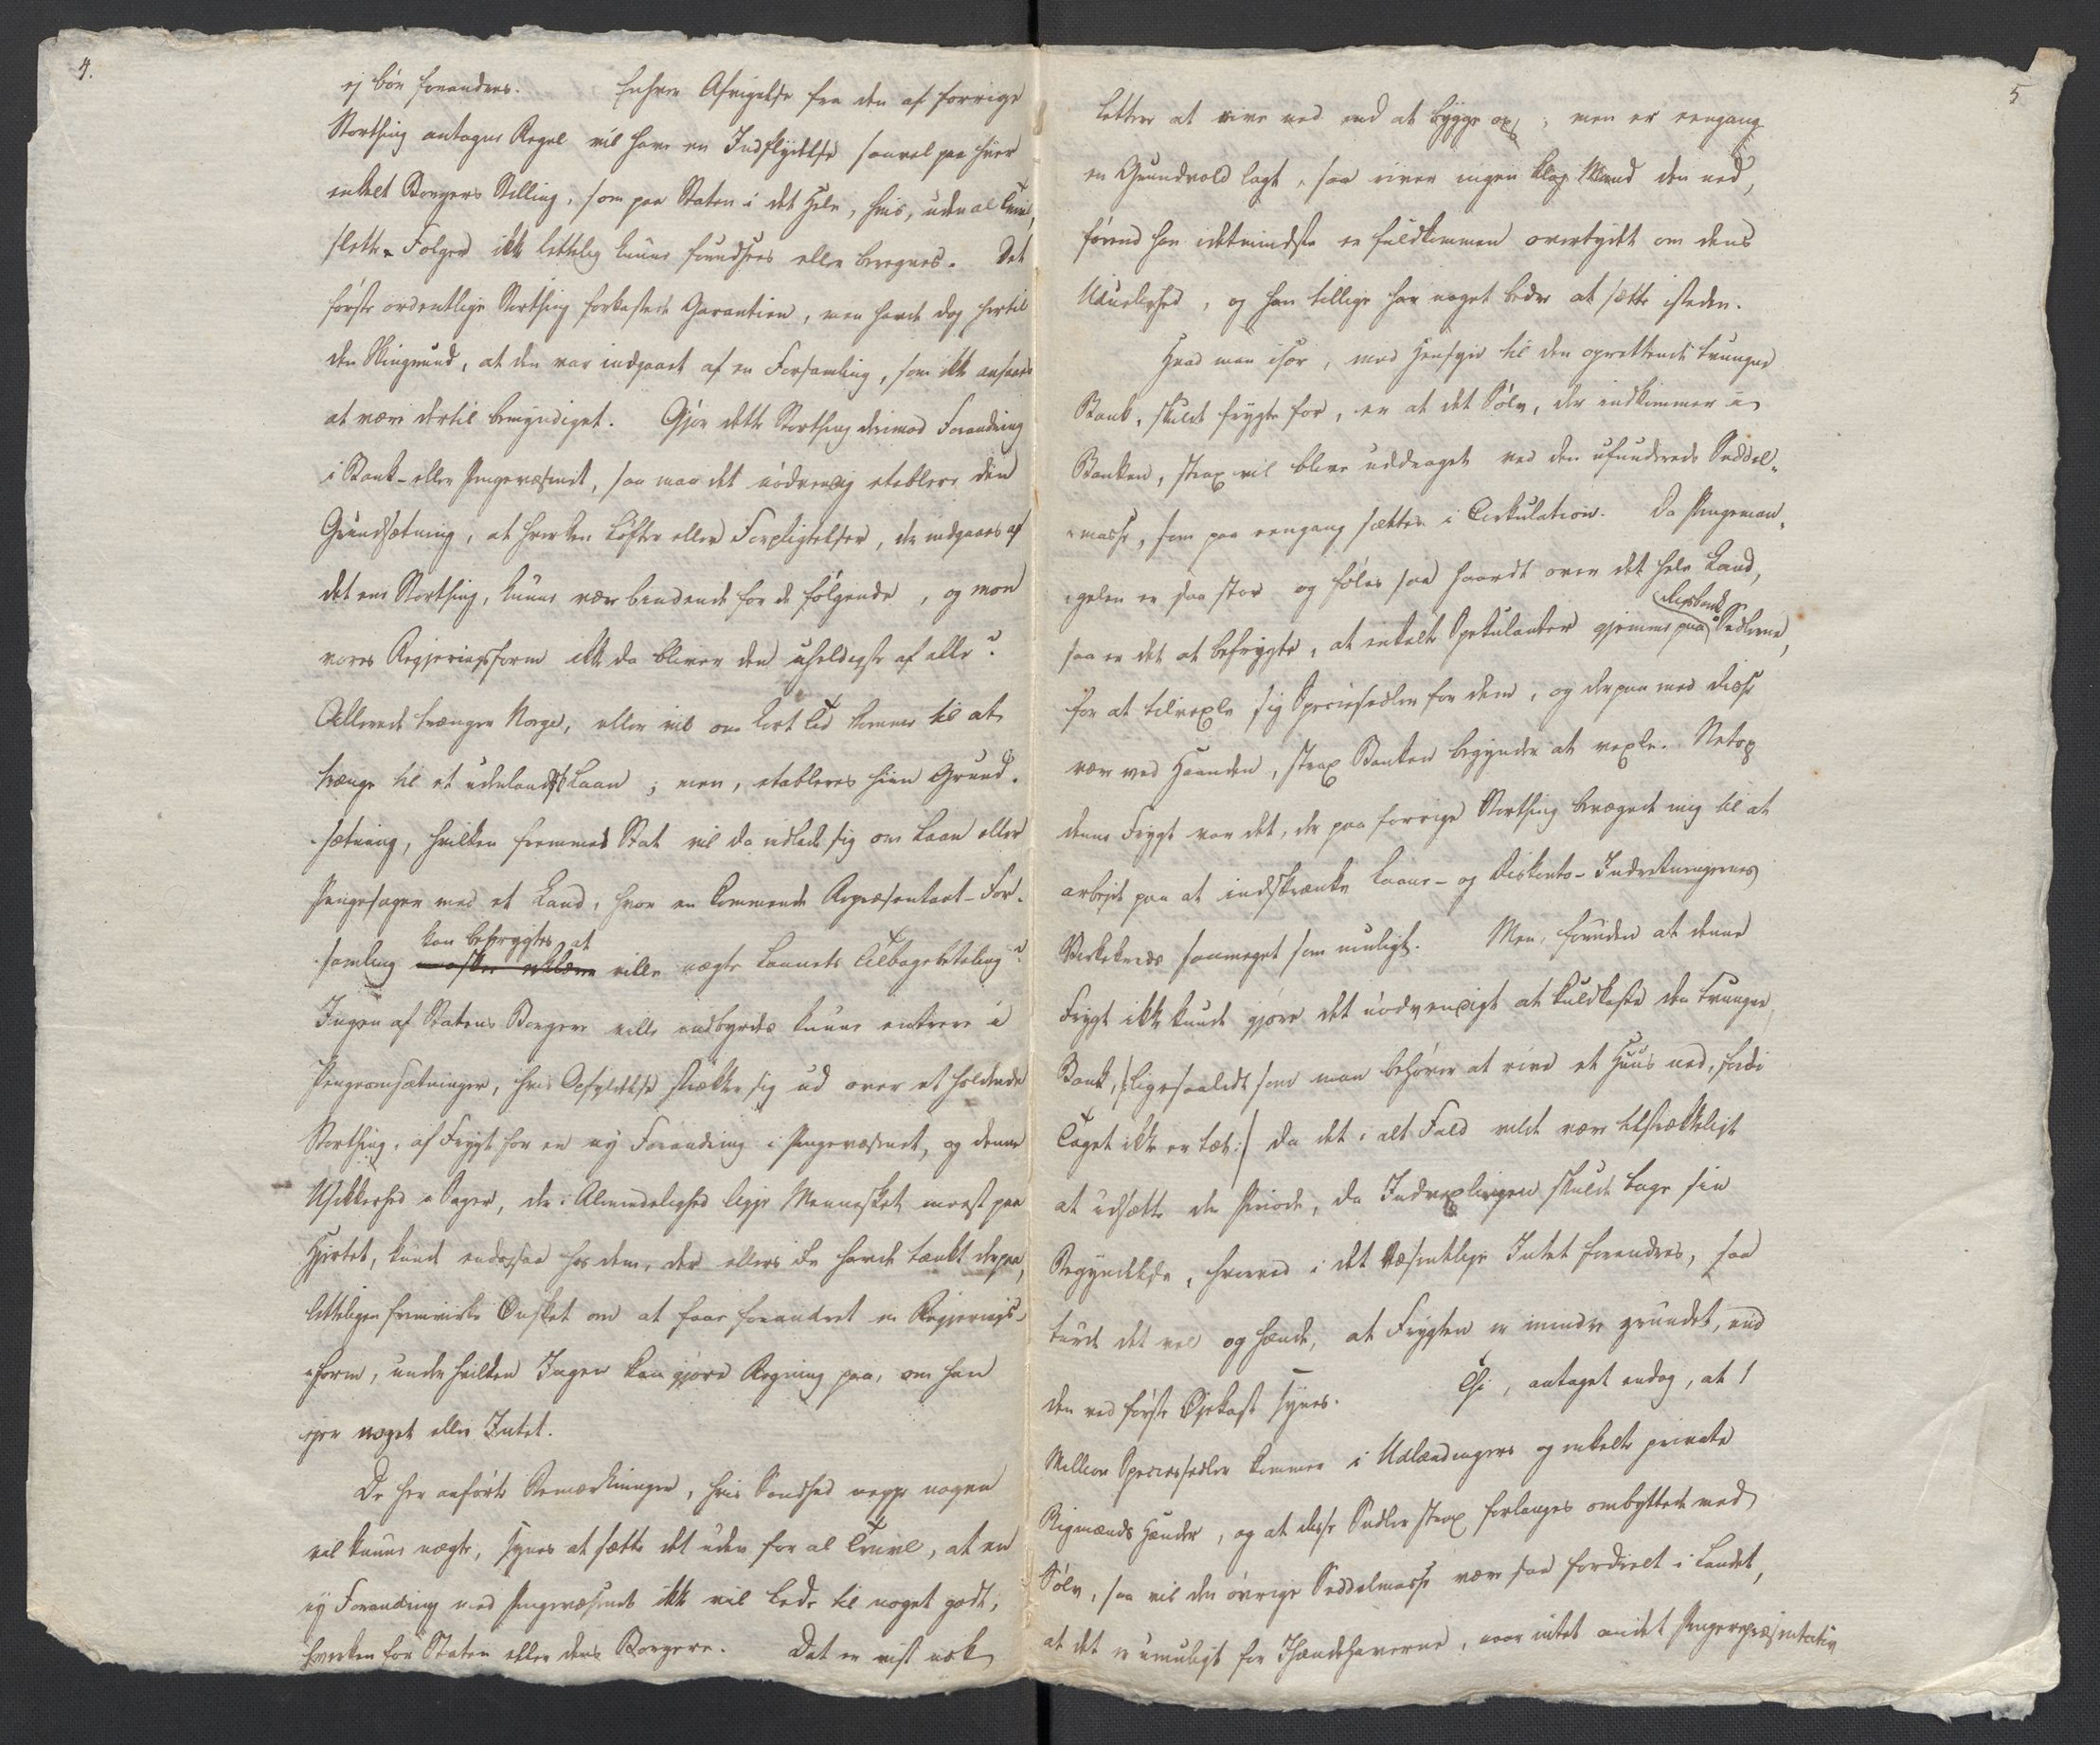 4.
ej bør forandres. Enhver Afvigelse fra den af forrige
Storthing antagne Regel vil have en Indflydelse saavel paa hver
enkelt Borgers Stilling, som paa Staten i det Hele, hvis, uden al Tvivl,
slette Følger ikke lettelig kunne forudsees eller beregnes. Det
første ordentlige Storthing forkastede Garantien, men havde dog hertil
den Skingrund, at den var indgaaet af en Forsamling, som ikke ansaaes
at være dertil bemyndiget. Gjør dette Storthing derimod Forandring
i Bank- eller Pengevæsenet, saa maa det nødvendig etablere den
Grundsætning, at hverken Løfter eller Forpligtelser, der indgaaes af
det ene Storthing, kunne være bindende for de følgende, og mon
vores Regjeringsform ikke da bliver den uheldigste af alle?
Allerede trænger Norge, eller vil om kort Tid komme til at
trænge til et udenlandsk Laan; men, etableres hiin Grund-
sætning, hvilken fremmed Stat vil da indlade sig om Laan eller
Pengesager med et Land, hvor en kommende Repræsentant-For-
kan befrygtes at
samling maaskee ville nægte Laanets Tilbagebetaling?
Ingen af Statens Borgere ville indbyrdes kunne entrere i
Pengeomsætninger, hvis Opfyldelse strække sig ud over et holdende
Storthing, af Frygt for en ny Forandring i Pengevæsenet, og denne
Usikkerhed i Sager, der i Almindelighed ligge Mennesket meest paa
Hjertet, kunde endogsaa hos dem, der ellers ei havde tænkt derpaa,
letteligen fremvirke Ønsket om at faae forandret en Regjerings-
form, under hvilken Ingen kan gjøre Regning paa, om han
ejer noget eller Intet.
De her anførte Bemærkninger, hvis Sandhed neppe nogen
vel kunne nægte, synes at sætte det uden for al Tvivl, at en
ny Forandring med Pengevæsenet ikke vil lede til noget godt,
hverken for Staten eller dens Borgere. Det er vist nok
5
lettere at rive ned end at bygge op; men er eengang
en Grundvold lagt, saa river ingen klog Mand den ned,
førend han idetmindste er fuldkommen overtydet om dens
Uduelighed, og han tillige har noget bedre at sætte isteden.
Hvad man især, med Hensyn til den oprettende tvungne
Bank, skulde frygte for, er at det Sølv, der indkommer i
Banken, strax vil blive uddraget ved den ufunderede Seddel-
masse, som paa eengang sættes i Cirkulation. Da Pengeman-
gelen er saa stor og føles saa haardt over det hele Land,
Rigsbank
saa er det at befrygte, at enkelte Spekulanter gjemme paa Sedlerne,
for at tilvexle sig Speciesedler for dem, og derpaa med disse
være ved Haanden, strax Banken begynder at vexle. Netop
denne Frygt var det, der paa forrige Storthing bevægede mig til at
arbejde paa at indskrænke Laane- og Diskonto-Indretningernes
Virkekreds saameget som muligt. Men, foruden at denne
Frygt ikke kunde gjøre det nødvendigt at kuldkaste den tvungne
Bank, /:ligesaalidt som man behøver at rive et Huus ned, fordi
Taget ikke er tæt:/ da det i alt Fald vilde være tilstrækkeligt
at udsætte den Periode, da Indvexlingen skulde tage sin
Begyndelse, hvorved i det Væsentlige Intet forandres, saa
turde det vel og hænde, at Frygten er mindre grundet, end
den ved første Øjekast synes. Thi, antaget endog, at 1
Million Speciessedler kommer i Udlændingers og enkelte private
Rigmænds Hænder, og at disse Sedler strax forlanges ombyttede med
Sølv, saa vil den øvrige Seddelmasse være saa fordeelt i Landet,
at det er umuligt for Ihændehaverne, naar intet andet Pengerepræsentativ